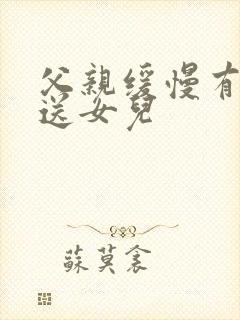 父親緩慢有
送女兒
蘇莫衾